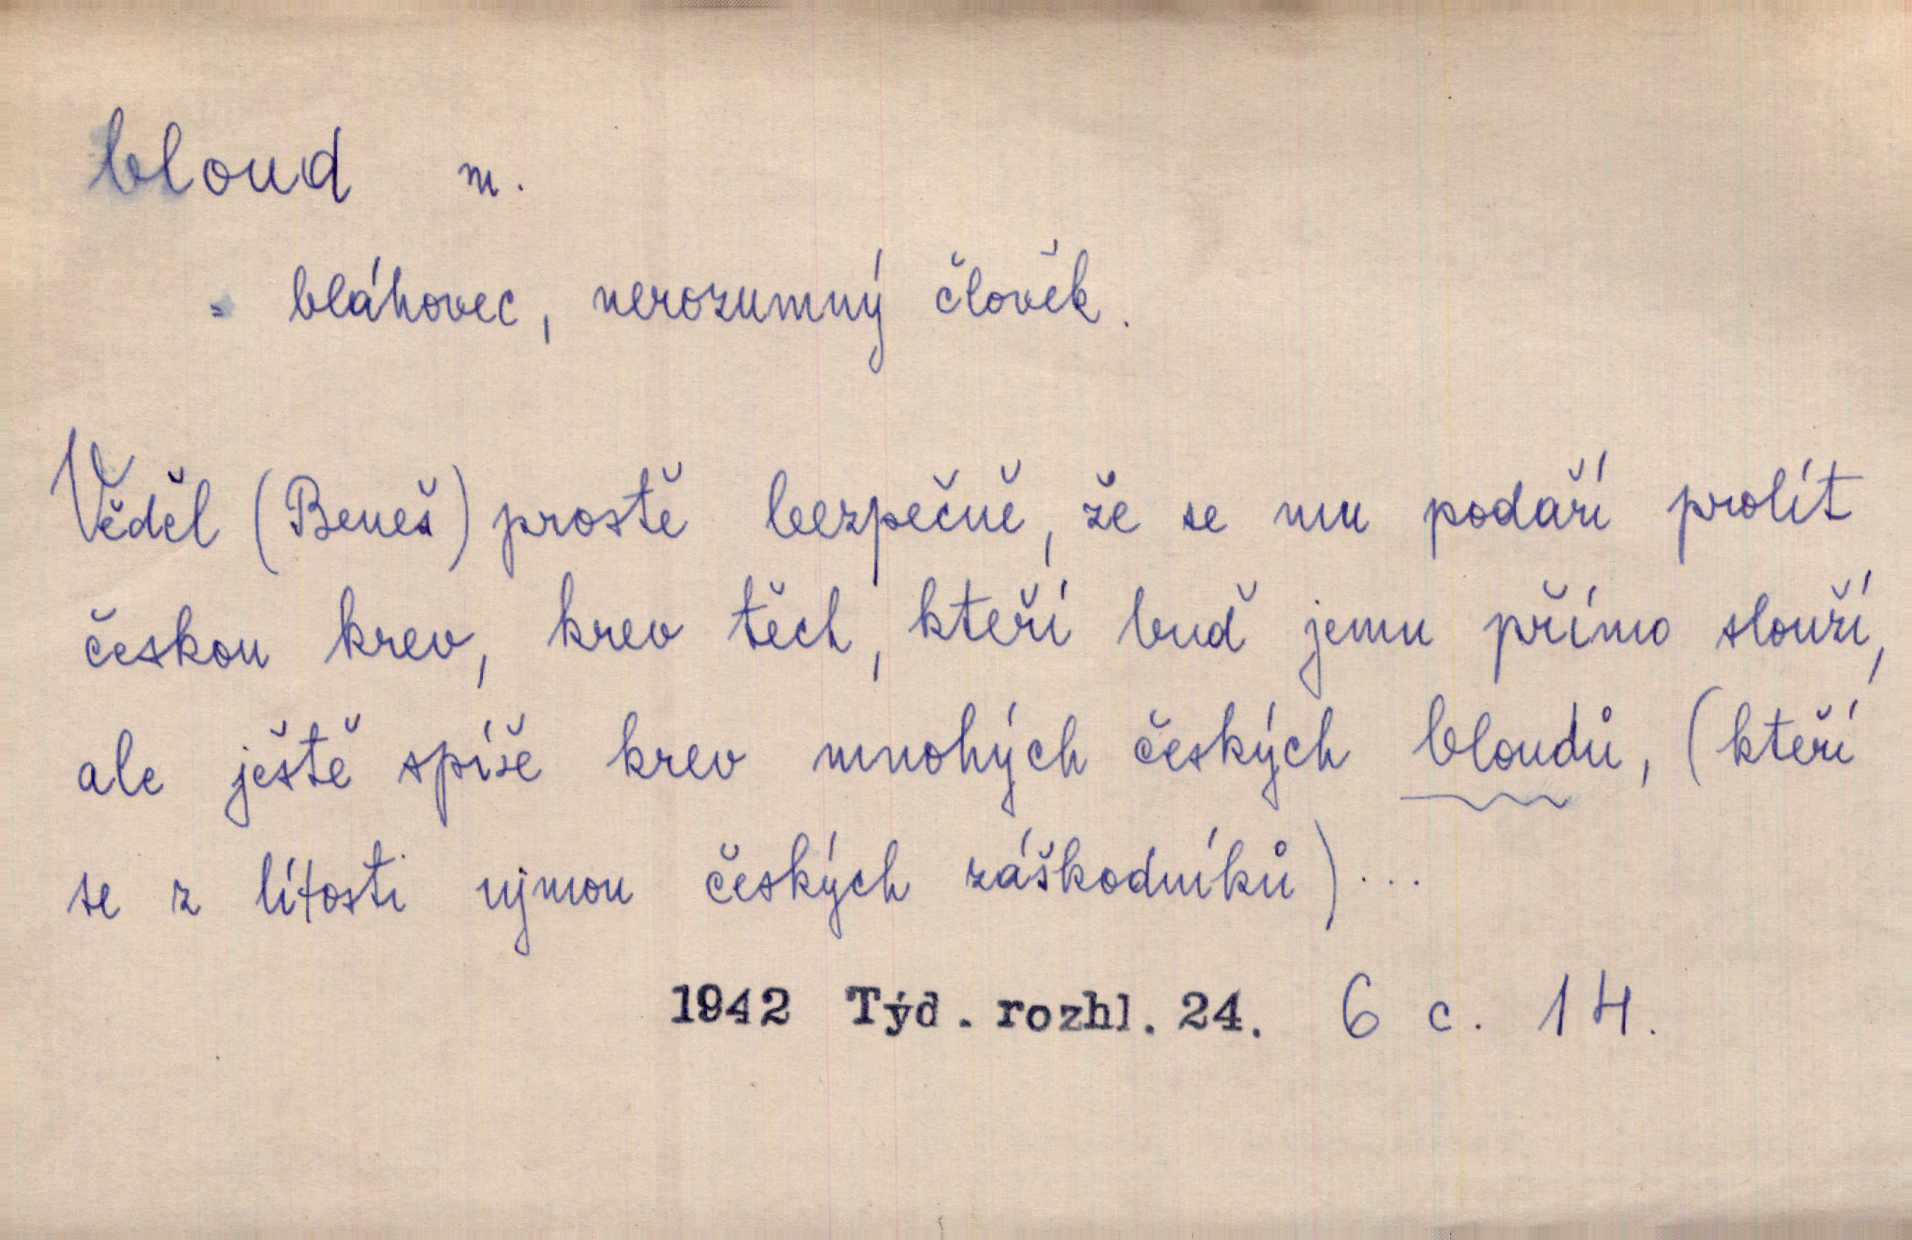 bloud m.
= bláhovec, nerozumný člověk.
Věděl (Beneš) prostě bezpečně, že se mu podaří prolít
českou krev, krev těch, kteří buď jemu přímo slouží,
ale ještě spíše krev mnohých českých bloudů, (kteří
se z lítosti ujmou českých záškodníků)...
1942 Týd. rozhl. 24. 6 c. 14.